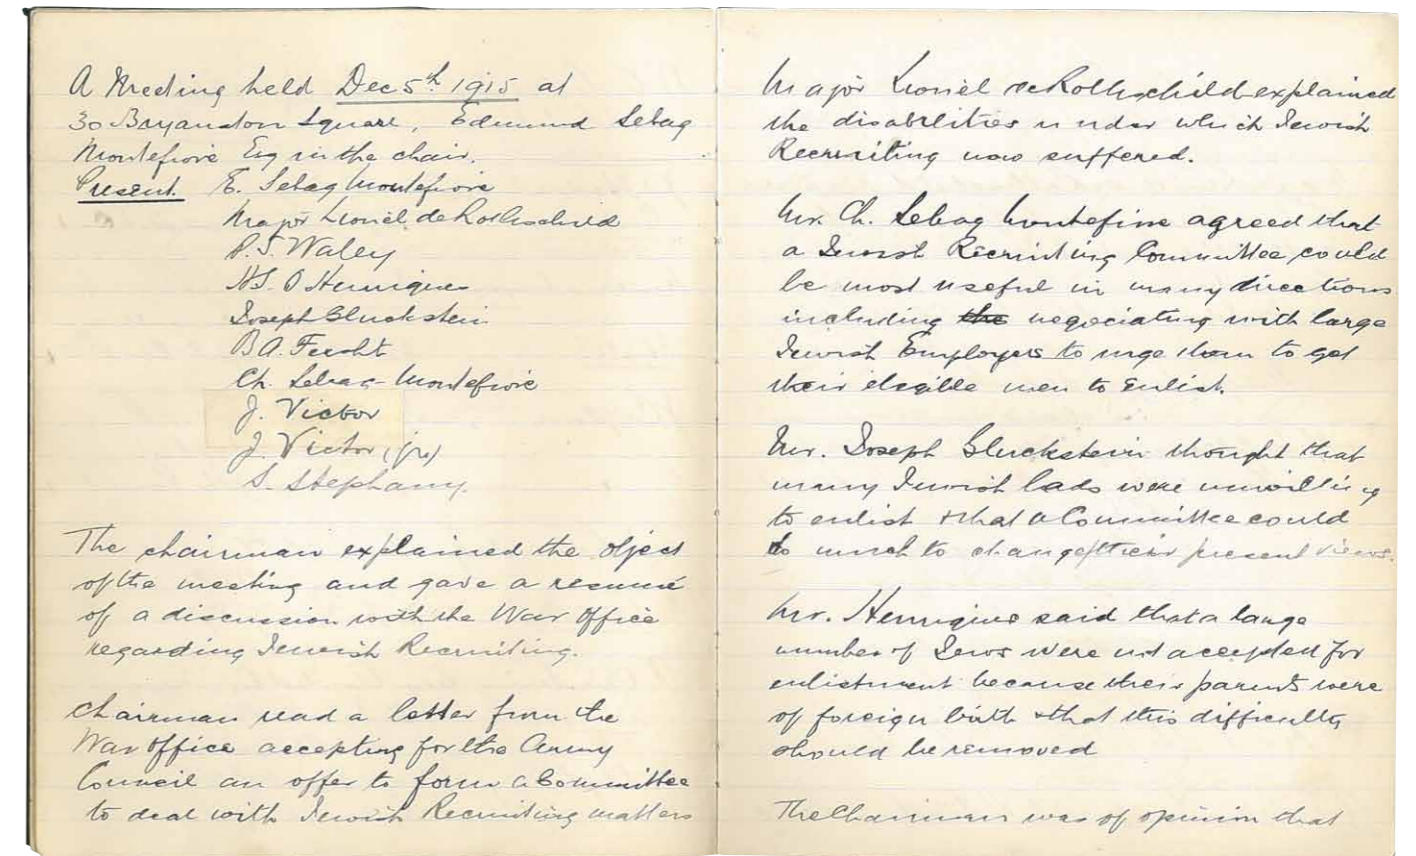 A Meeting held Dec 5th 1915 at
30 Bryanston Square, Edmund Sebag
Montefiore Esq in the chair.
Present E. Sebag Montefiore
Major Lionel de Rothschild
P. J. Waley
H.S. Q Henriques
Joseph Gluckstein
B.A. Fersht
Ch. Sebag-Montefiore
J. Victor
J. Victor (jr)
S. Stephany.
The chairman explained the object
of the meeting and gave a resumé
of a discussion with the War Office
regarding Jewish Recruiting.
Chairman read a letter from the
War Office accepting for the Army
Council an offer to form a Committee
to deal with Jewish Recruiting matters
Major Lionel de Rothschild explained
the disabilities under which Jewish
Recruiting now suffered.
Mr. Ch. Sebag Montefiore agreed that
a Jewish Recruiting Committee could
be most useful in many directions
including the negociating with large
Jewish Employers to urge them to get
their eligible men to enlist.
Mr. Joseph Gluckstein thought that
many Jewish lads were unwilling
to enlist & that a Committee could
do much to change their present views.
Mr. Henriques said that a large
number of Jews were not accepted for
enlistment because their parents were
of foreign birth & that this difficulty
should be removed
The Chairman was of opinion that